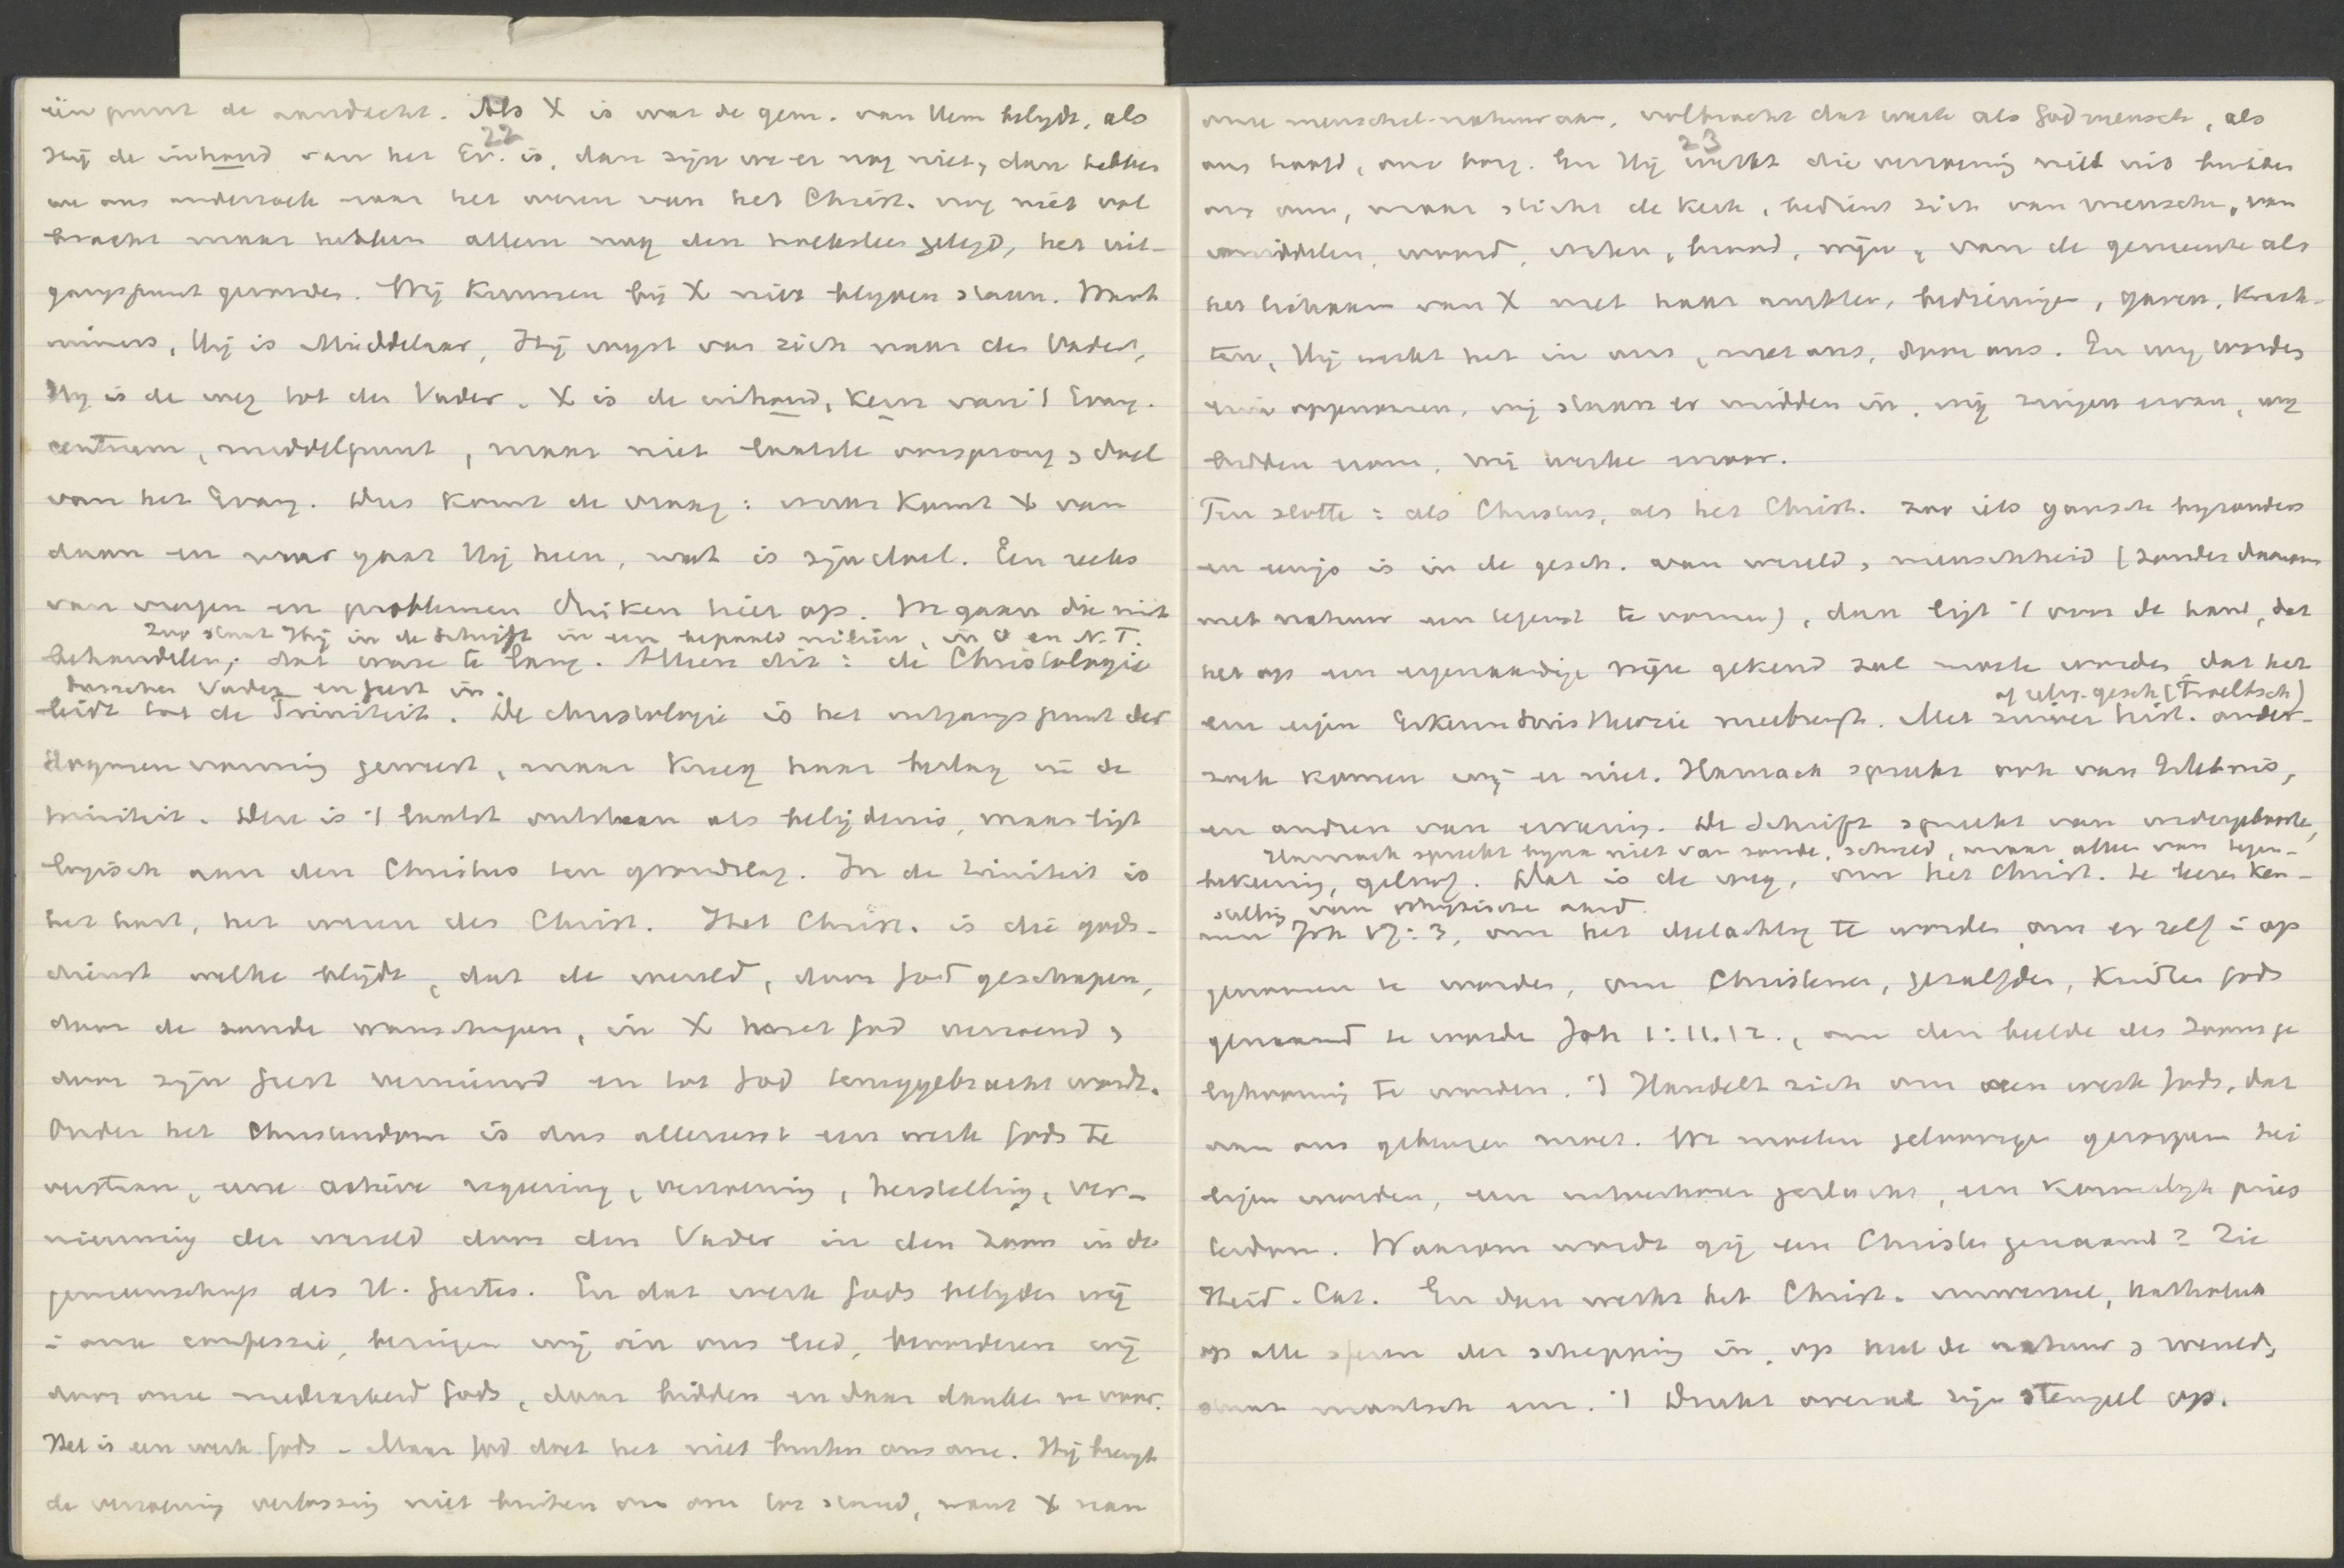 één punt de aandacht. Als X is wat de gem. van Hem belydt, als
22
Hij de inhoud van het Ev. is, dan zijn we er nog niet, dan hebben
we ons onderzoek naar het wezen van het Christ. nog niet vol
bracht maar hebben alleen nog den hoeksteen gelegd, het uit-
gangspunt gevonden. Wij kunnen bij X niet blyven staan. Want
immers, Hij is Middelaar, Hij wyst van zich naar den Vader,
Hy is de weg tot den Vader. X is de inhoud, kern van 't Evang.
centrum, middelpunt, maar niet laatste oorsprong, doel
van het Evang. Dus komt de vraag: vanwaar komt X van
daan en waar gaat Hij heen, wat is zijn doel. Een reeks
van vragen en problemen duiken hier op. We gaan die niet
zoo staat Hij in de Schrift in een bepaald milieu, in O en N.T.
behandelen, dat ware te lang. Alleen dit: de Christologie
tusschen Vader en Geest in.
leidt tot de Triniteit. De christologie is het uitgangspunt der
dogmenvorming geweest, maar kreeg haar beslag in de
triniteit. Deze is 't laatst ontstaan als belijdenis, maar ligt
logisch aan den Christus ten grondslag. In de triniteit is
het hart, het wezen des Christ. Het Christ. is die gods-
dienst welke belijdt, dat de wereld, door God geschapen,
door de zonde wanschapen, in X met God verzoend,
door zijn Geest vernieuwd en tot God teruggebracht wordt.
Onder het Christendom is dus allereerst een werk Gods te
verstaan, eene actieve regeering, verzoening, herstelling, ver-
nieuwing der wereld door den Vader in den Zoon in de
gemeenschap des H. Geestes. En dat werk Gods belyden wij
in onze confessie, bezingen wij in ons lied, bevorderen wij
door onze medearbeid Gods, daar bidden en daar danken we voor.
Het is een werk Gods. Maar God doet het niet buiten ons om. Hij brengt
de verzoening verlossing niet buiten om ons tot stand, want X nam
onze menschel. natuur aan, volbracht dat werk als Godmensch, als
23
ons hoofd, onze borg. En Hij werkt die verzoening niet uit buiten
ons om, maar sticht de kerk, bedient zich van menschen, van
middelen, woord, water, brood, wijn, van de gemeente als
het lichaam van X met haar ambten, bedieningen, gaven, krach-
ten, Hij werkt het in ons, met ons, door ons. En wij worden
erin opgenomen, wij staan er midden in, wij zingen ervan, wy
bidden erom, wij werken ervoor.
Ten slotte: als Christus, als het Christ. zoo iets gansch byzonders
en eenigs is in de gesch. van wereld, menschheid (zonder daarom
met natuur een tegenst. te vormen), dan ligt 't voor de hand, dat
het op een eigenaardige wijze gekend zal moeten worden, dat het
of relig. gesch. (Troeltsch)
een eigen Erkenntnistheorie meebrengt. Met zuiver hist. onder-
zoek komen wij er niet. Harnack spreekt ook van Erlebnis,
en anderen van ervaring. De Schrift spreekt van wedergeboorte,
Harnack spreekt byna niet van zonde, schuld, maar alleen van tegen-
bekeering, geloof. Dat is de weg, om het Christ. te leeren ken-
stelling van physische aard.
nen Joh 17:3, om het deelachtig te worden, om er zelf in op
genomen te worden, om Christenen, gezalfden, kinderen Gods
genaamd te worden Joh 1:11.12., om den beelde des Zoons ge
lykvormig te worden. 't Handelt zich om een werk Gods, dat
aan ons gebeuren moet. We moeten geloovigen geroepen hei
ligen worden, een uitverkoren geslacht, een koninklijk pries
terdom. Waarom wordt gij een Christen genaamd? Zie
Heid. Cat. En dan werkt het Christ. universeel, katholiek
op alle sferen der schepping in, op heel de natuur, wereld,
maatsch. enz. 't Drukt overal zijn stempel op.